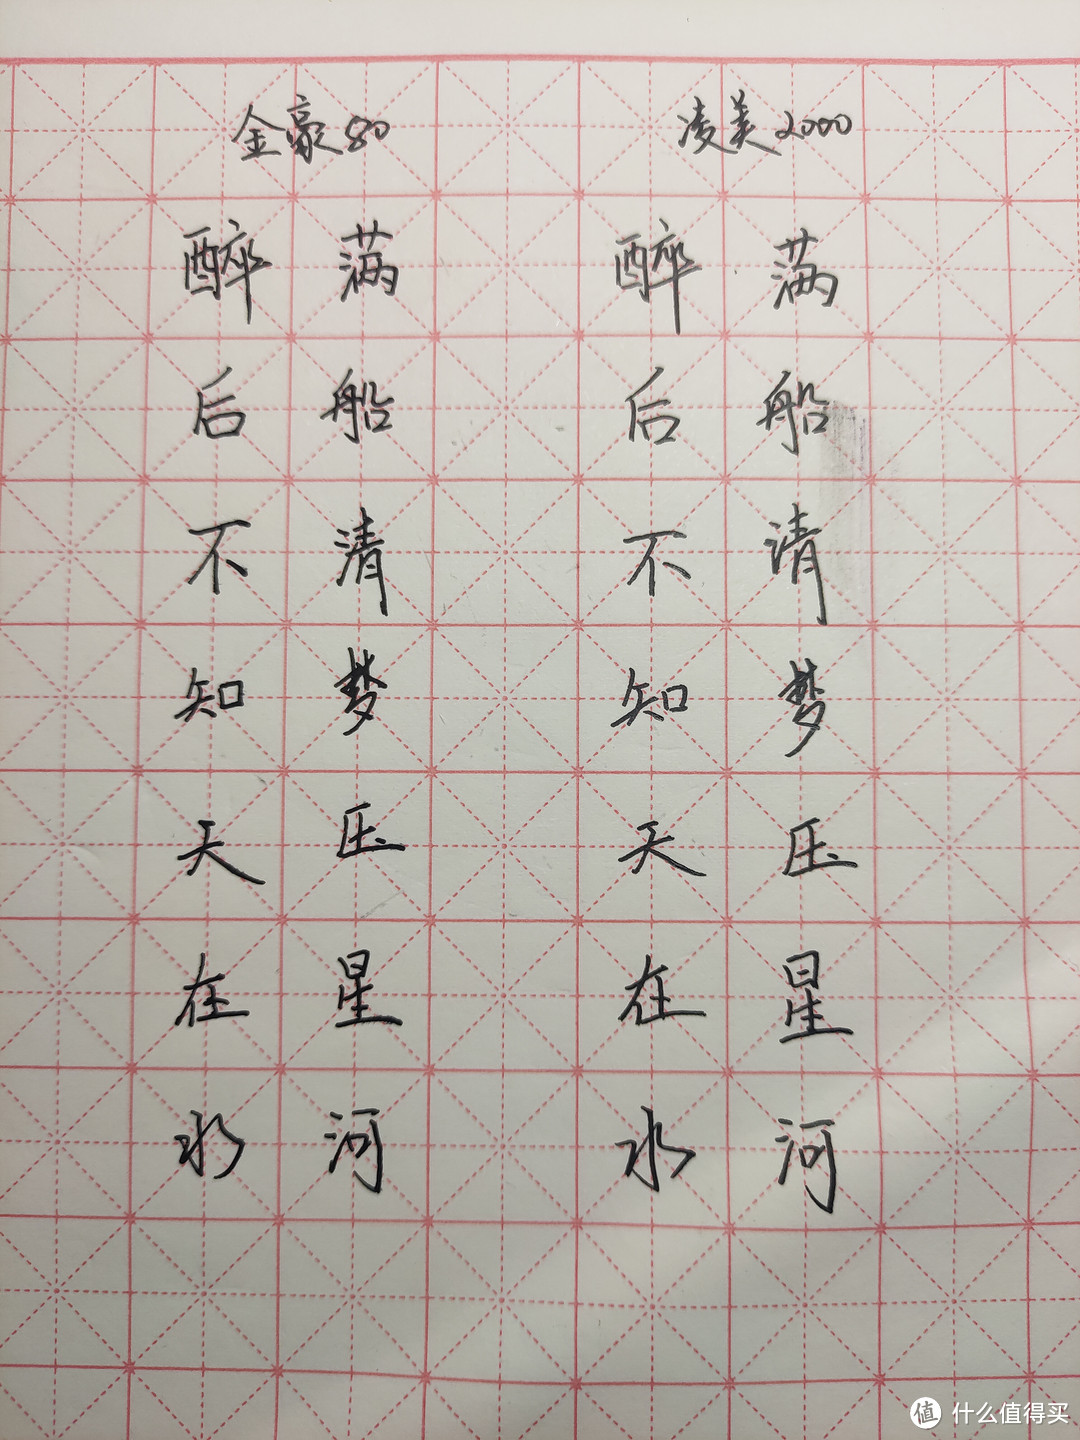 金豪80
醉后不知天在水
满船清梦压星河
凌美2000
醉后不知天在水
满船清梦压星河
值 什么值得买